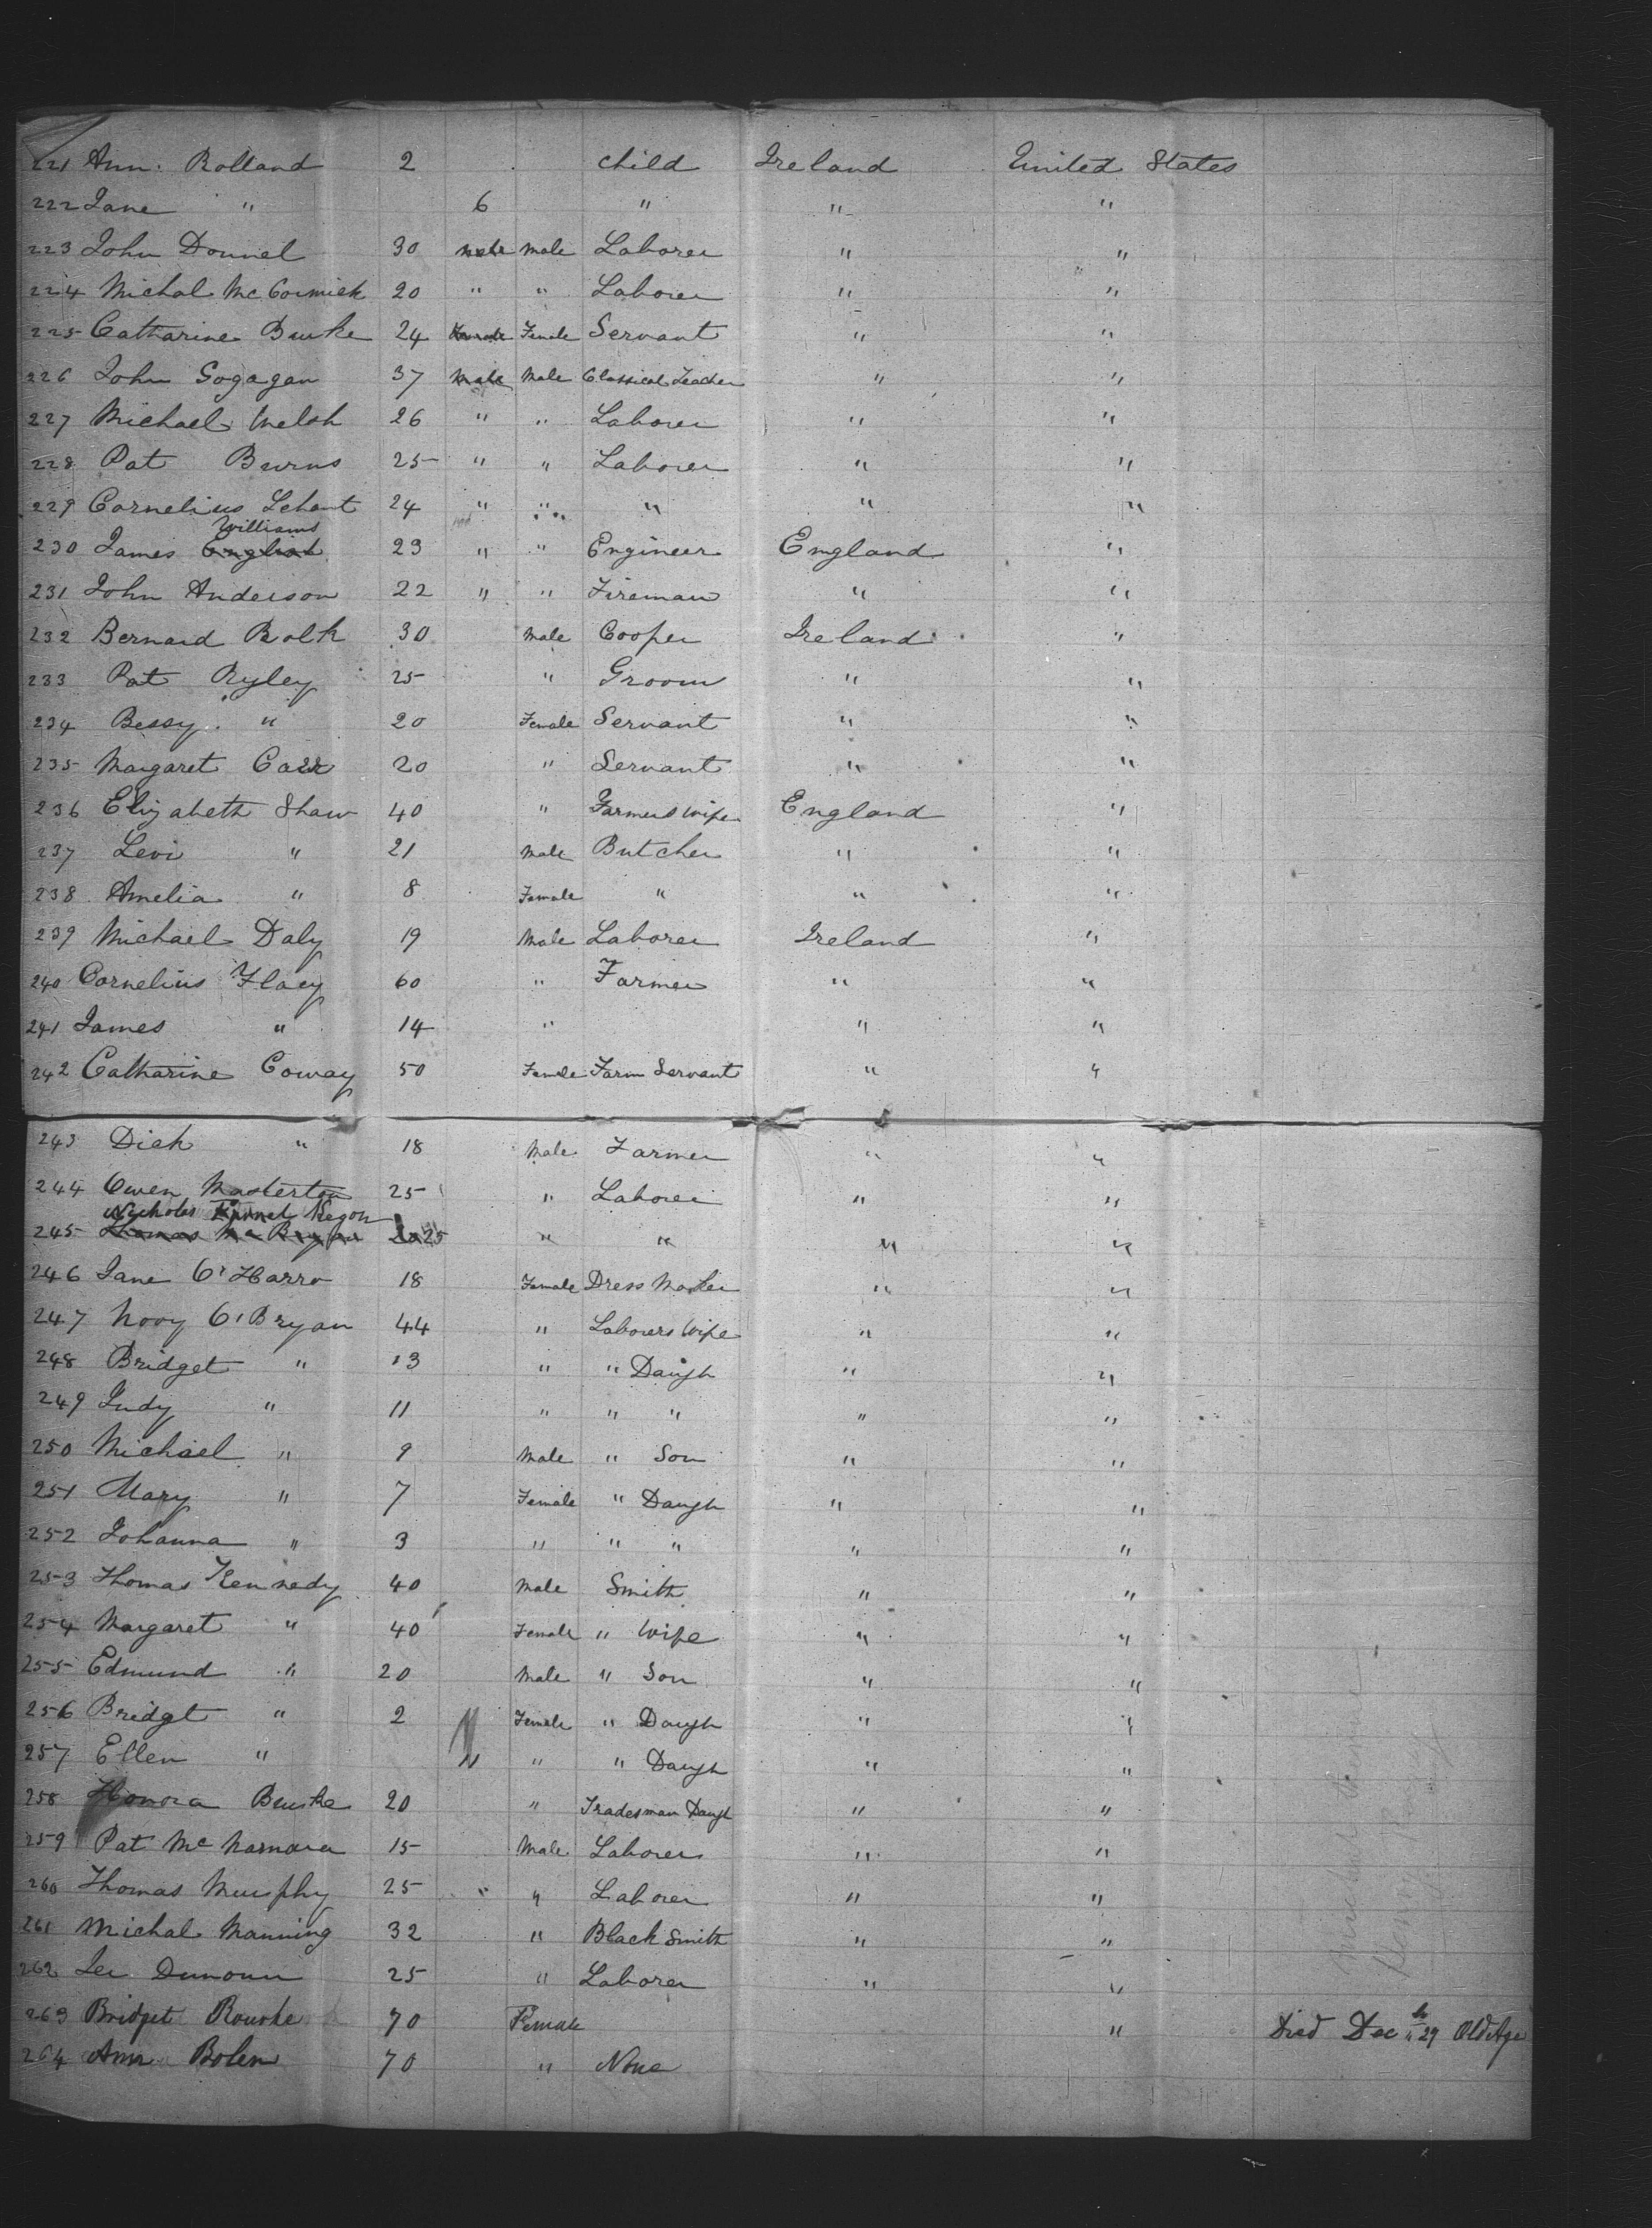 221 Ann Rolland 2 child Ireland United States
222 Jane " 6 " " "
223 John Donnel 30 Male Male Laborer " "
224 Michal McCormick 20 " " Laborer " "
225 Catharine Burke 24 Female Female Servant " "
226 John Gogagan 37 Male Male Classical Teacher " "
227 Michael Welsh 26 " " Laborer " "
228 Pat Burns 25 " " Laborer " "
229 Cornelius Lehant 24 " " " " "
Williams
230 James English 23 " " Engineer England "
231 John Anderson 22 " " Fireman " "
232 Bernard Rolk 30 Male Cooper Ireland "
233 Pat Ryley 25 " Groom " "
234 Bessy " 20 Female Servant " "
235 Margaret Carr 20 " Servant " "
236 Elizabeth Shaw 40 " Farmers Wife England "
237 Levi " 21 Male Butcher " "
238 Amelia " 8 Female " " "
239 Michael Daly 19 Male Laborer Ireland "
240 Cornelius Flaey 60 " Farmer " "
241 James " 14 " " "
242 Catharine Coway 50 Female Farm Servant " "
243 Dick " 18 Male Farmer " "
244 Owen Masterton 25 " Laborer " "
Nicholas Kegon
245 Thomas McBryan 25 " " " "
246 Jane O'Harro 18 Female Dress Maker " "
247 Nory O'Bryan 44 " Laborers Wife " "
248 Bridget " 13 " " Daugh " "
249 Judy " 11 " " " " "
250 Michael " 9 Male " Son " "
251 Mary " 7 Female " Daugh " "
252 Johanna " 3 " " " " "
253 Thomas Kennedy 40 Male Smith " "
254 Margaret " 40 Female " Wife " "
255 Edmund " 20 Male " Son " "
256 Bridgt " 2 Female " Daugh " "
257 Ellen " 11 " " Daugh " "
258 Honora Burke 20 " Tradesman Daugh " "
259 Pat McNamara 15 Male Laborer " "
260 Thomas Murphy 25 " Laborer " "
261 Michal Manning 32 " Black Smith " "
262 Dunoun 25 " Laborer " "
263 Bridget Rourke 70 Female " Died Dec 29 Old Age
264 Ann Bolen 70 " None